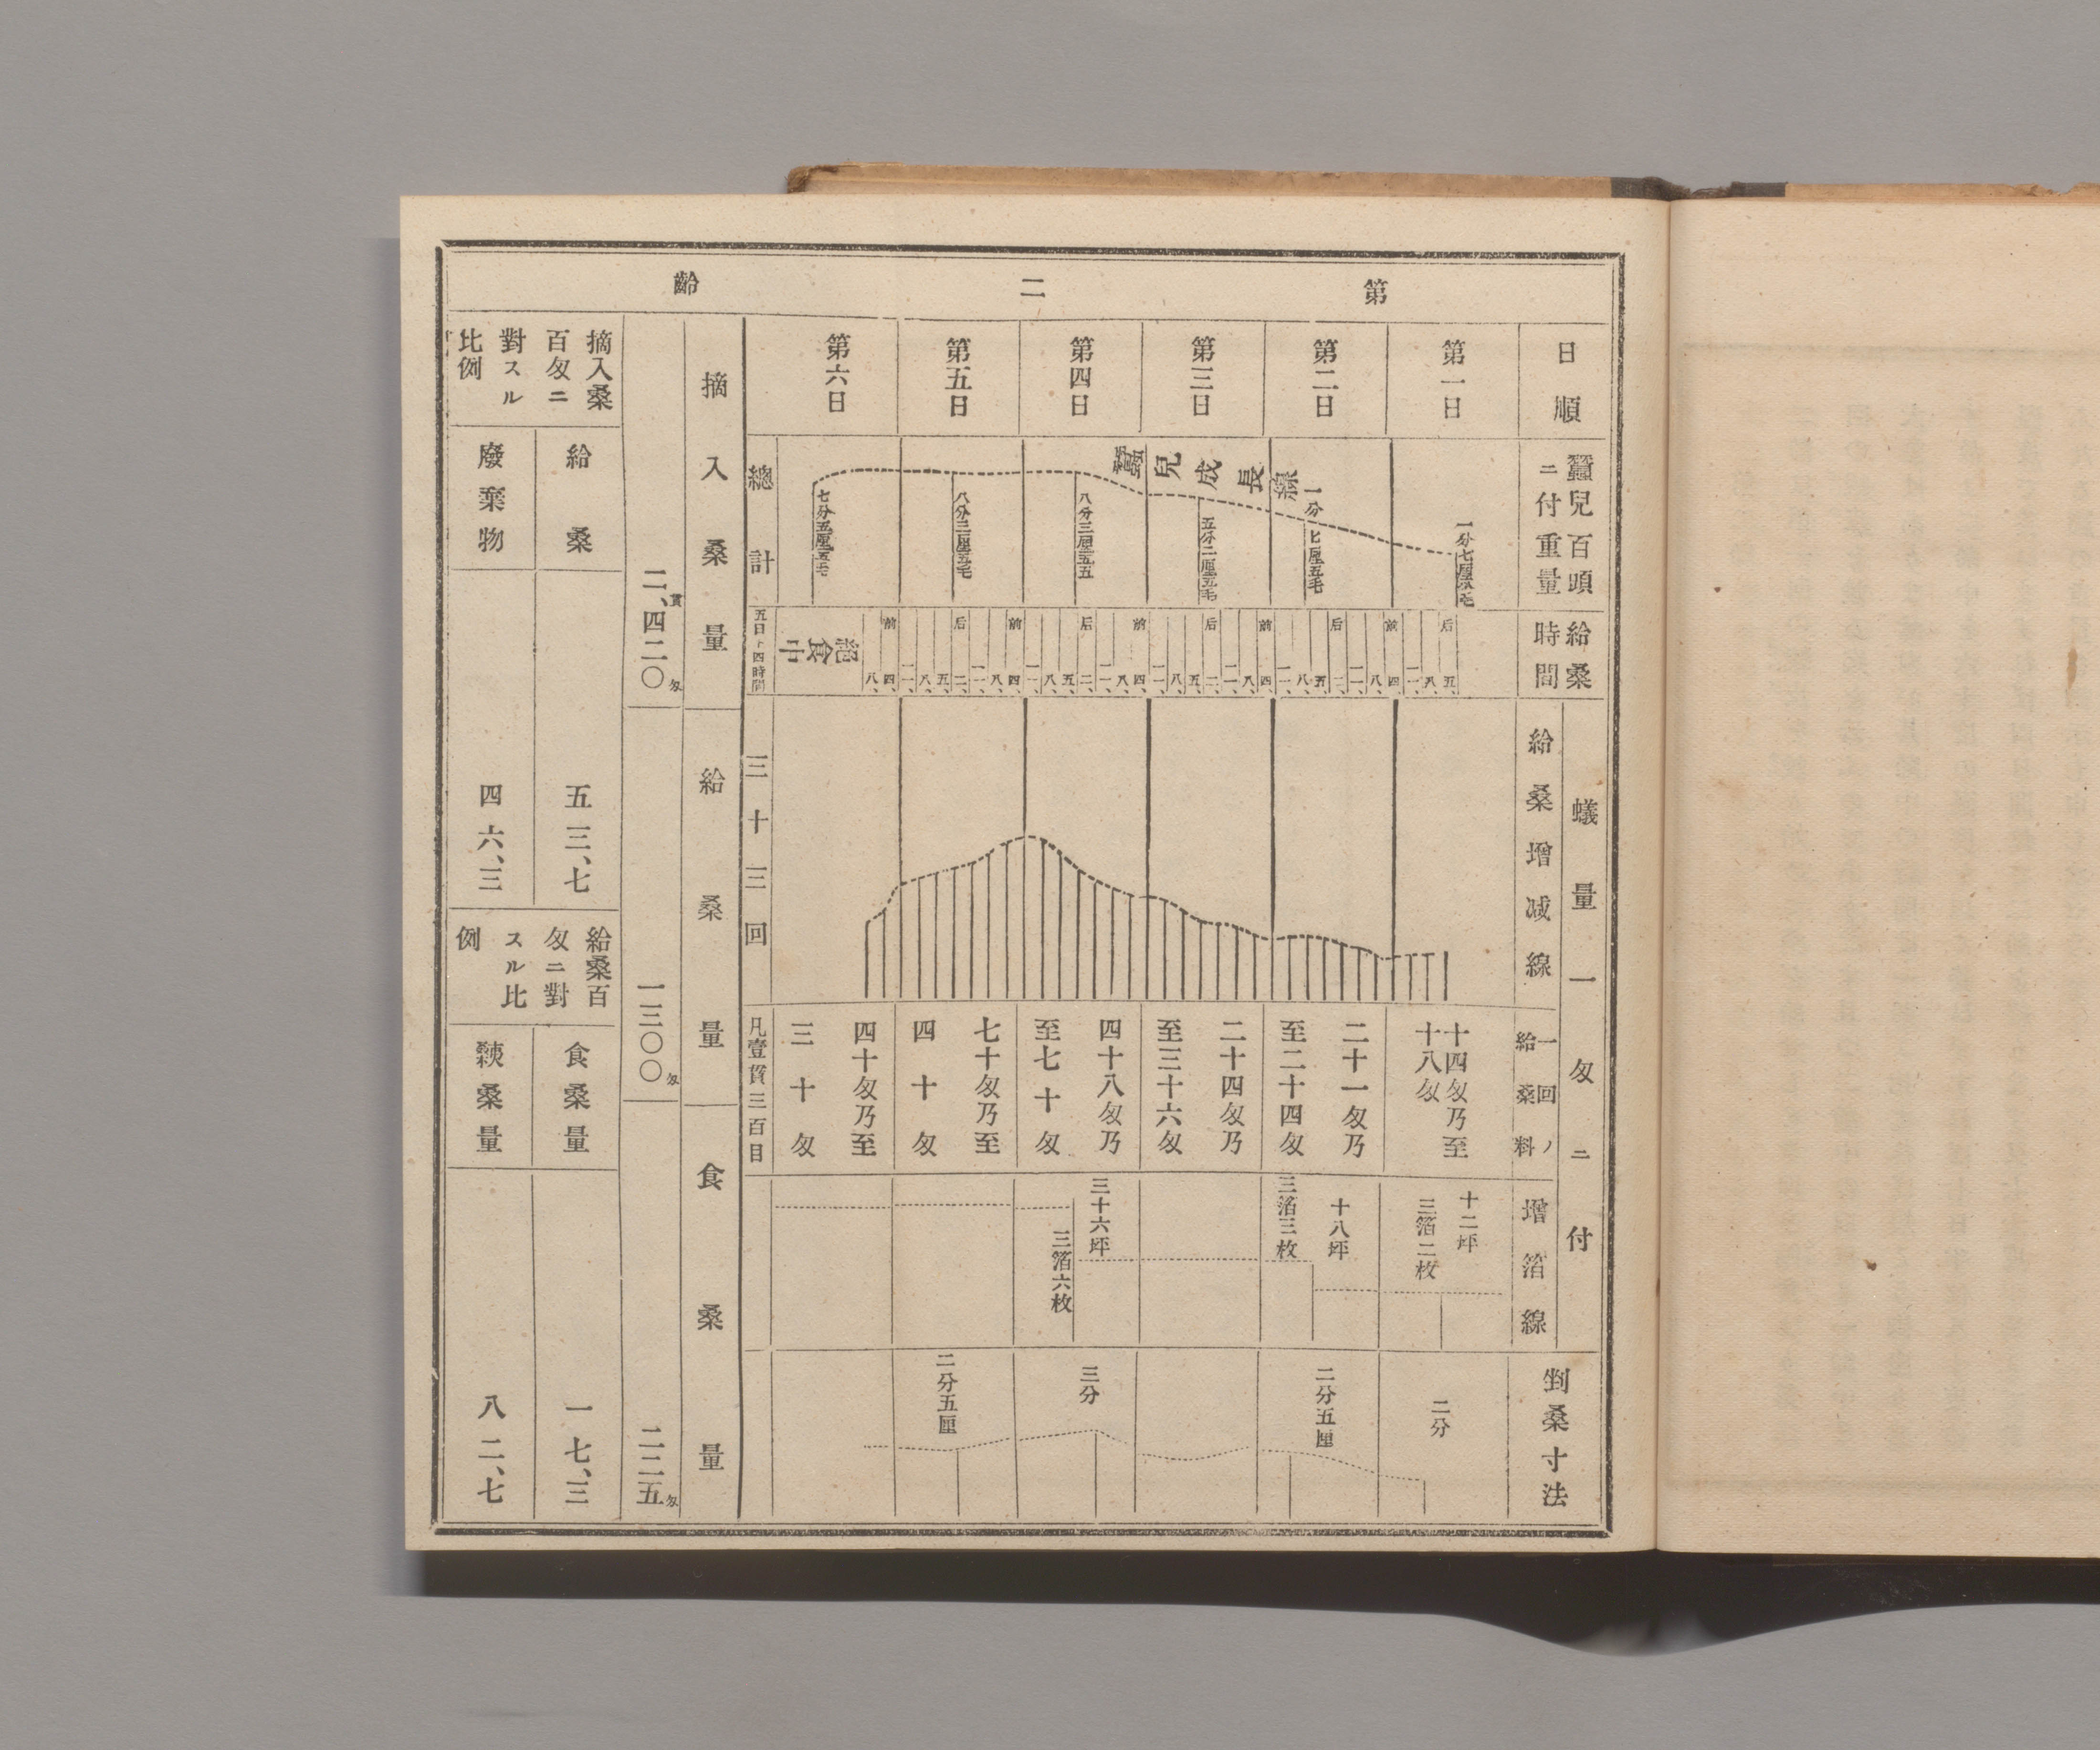 第二齡
日順
第一日
第二日
第三日
第四日
第五日
第六日
蠶兒百頭
ニ付重量
蠶兒成長線
一分
七厘五毛
五分二厘五毛
八分三厘五五
八分三厘五毛
七分五厘五毛
總計
給桑
時間
后
五、
八、
前
四、
絕食中
五日ト四時間
蟻量一匁ニ付
給桑增減線
三十三回
一回ノ
給桑料
十四匁乃至
十八匁
二十一匁乃
至二十四匁
二十四匁乃
至三十六匁
四十八匁乃
至七十匁
七十匁乃至
四十匁
四十匁乃至
三十匁
凡壹貫三百目
增箔線
十二坪
三箔二枚
十八坪
三箔三枚
三十六坪
三箔六枚
剉桑寸法
二分
二分五厘
三分
二分五厘
摘入桑量
二貫、四二〇匁
給桑量
一三〇〇匁
食桑量
二二五匁
摘入桑
百匁ニ
對スル
比例
給桑
五三、七
廢棄物
四六、三
給桑百
匁ニ對
スル比
例
食桑量
一七、三
殘桑量
八二、七